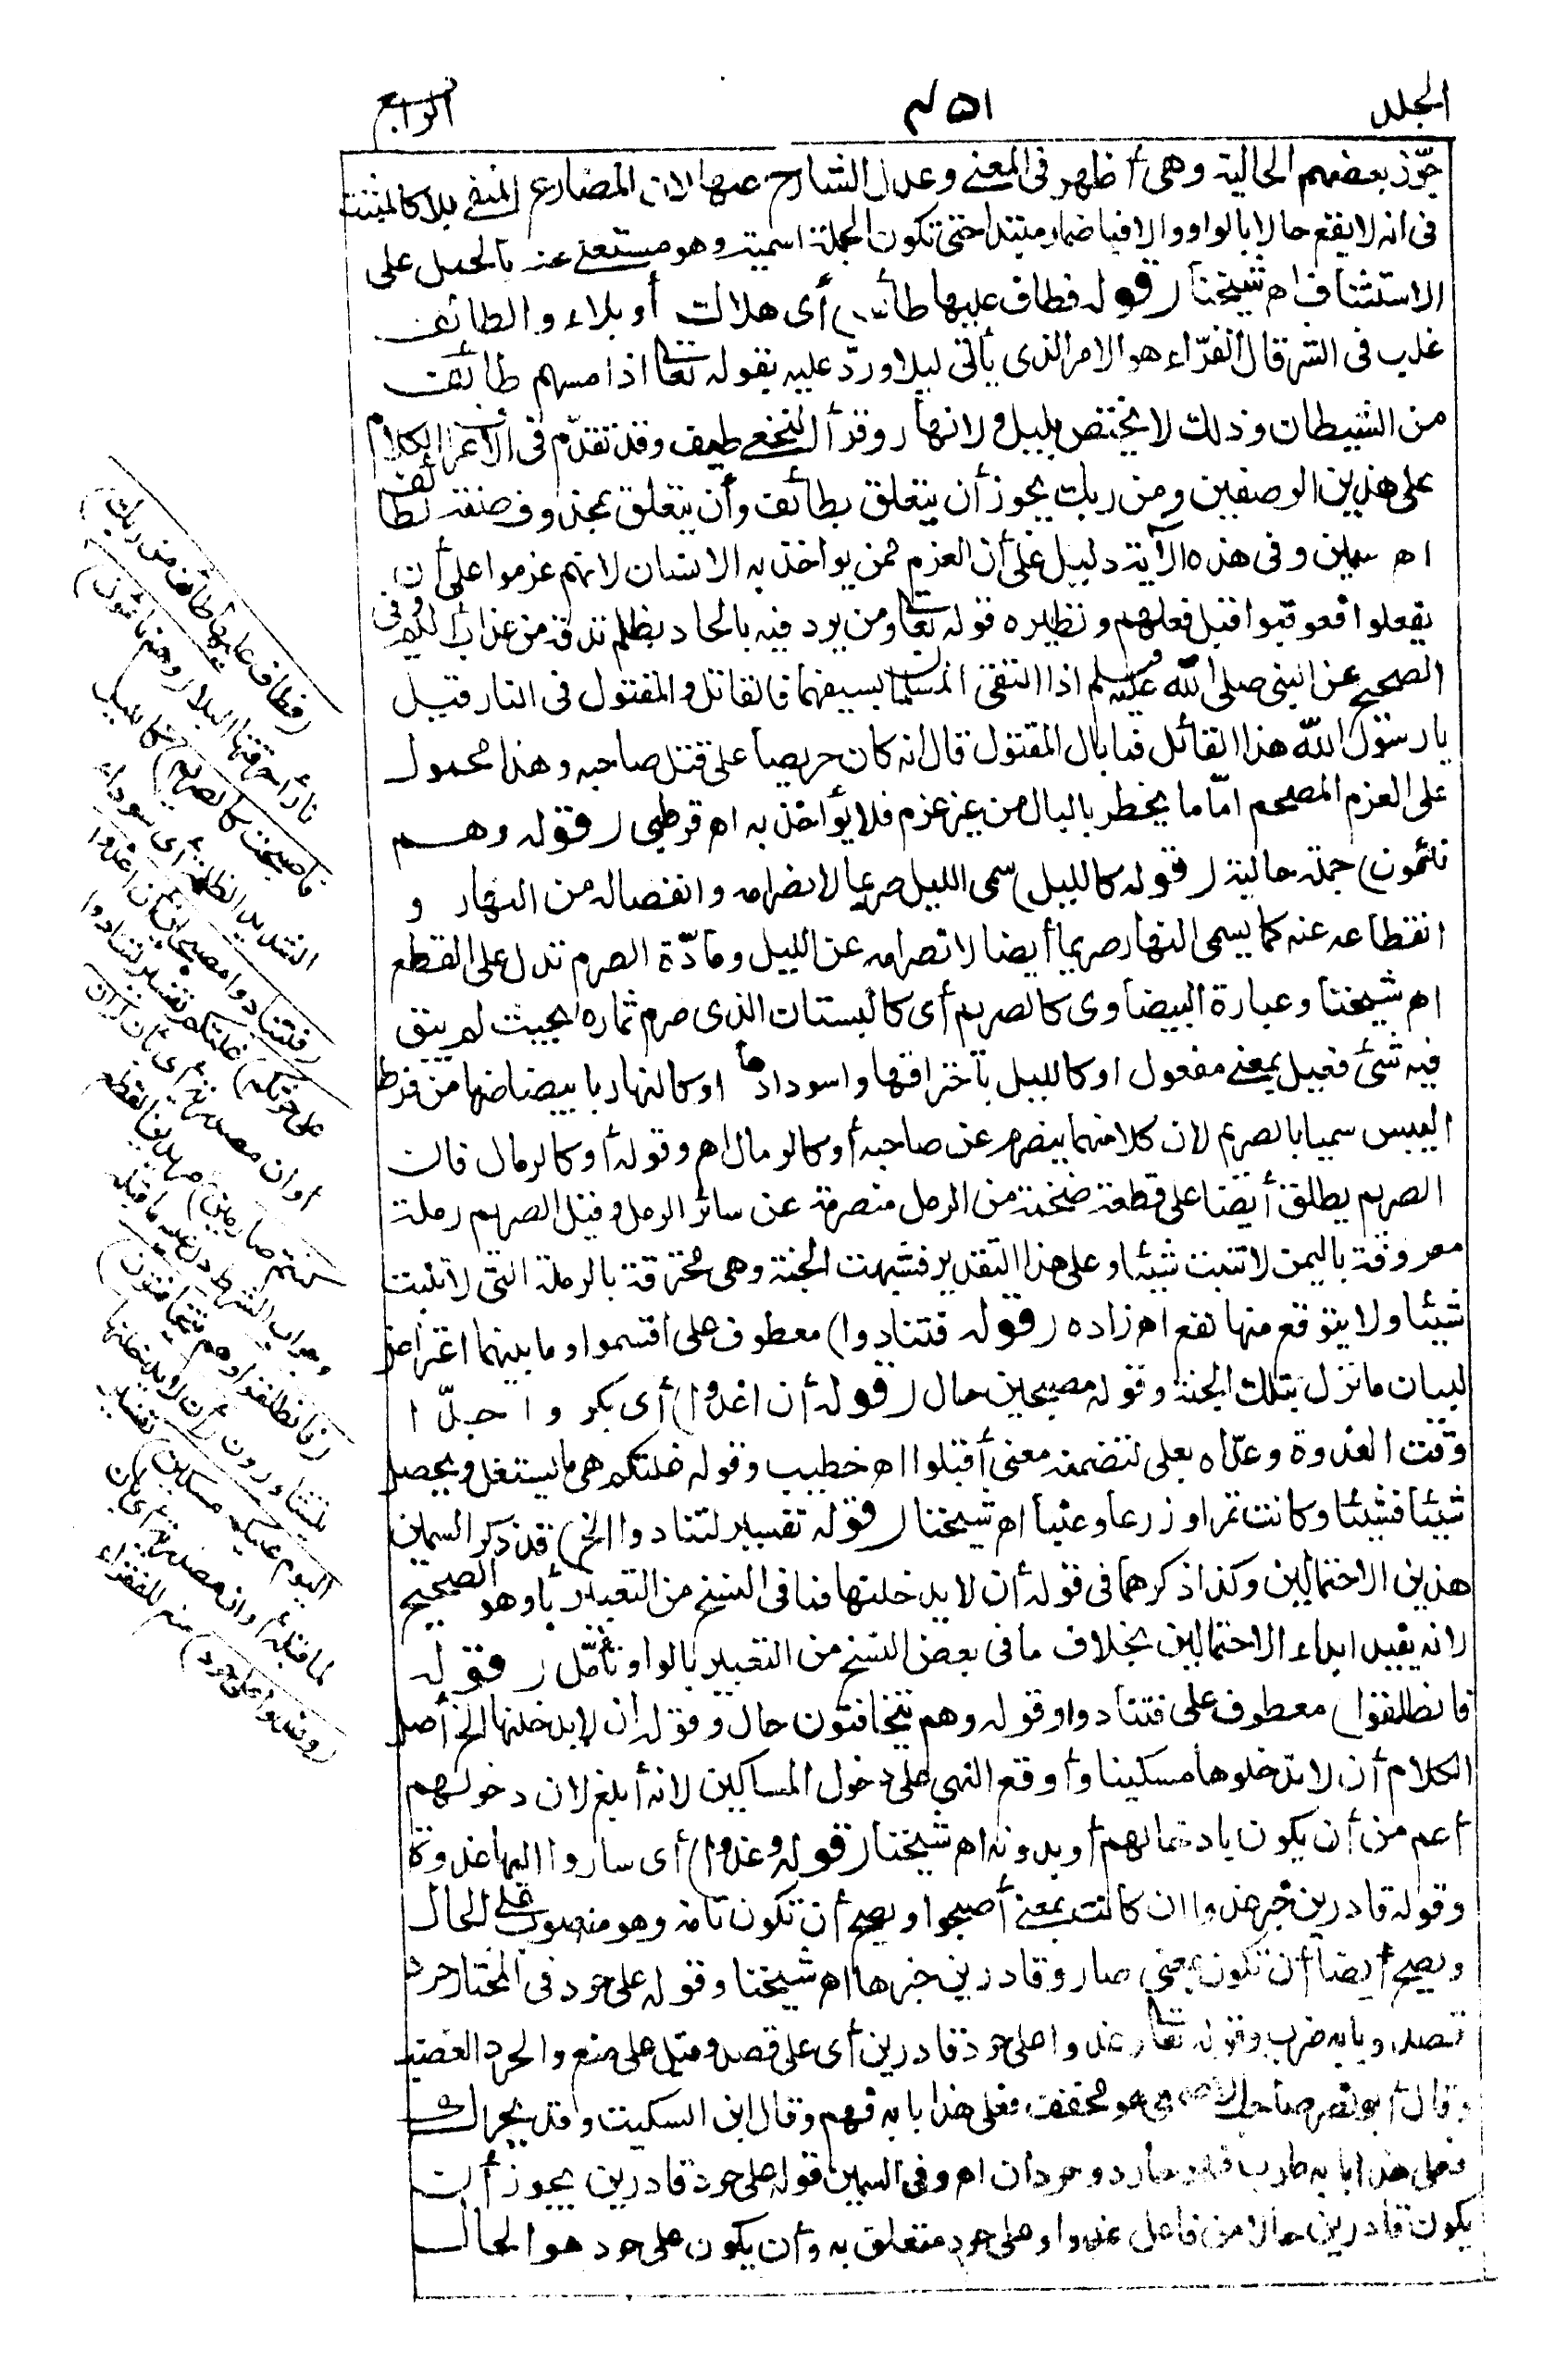 الجلد ٤٥١ الرابع
جوّز بعضهم الحالية وهى أظهر فى المعنى وعدل الشارح عنها لان المضارع المنفى بلا كالمثبت
فى انه لا يقع حالا بالواو والا فباضمار مبتدا حتى تكون الجملة اسمية وهو مستغنى عنه بالحمل على
الاستئناف اه شيخنا (قوله فطاف عليها طائف) أى هلاك أو بلاء والطائف
غلب فى الشر قال الفرّاء هو الامر الذى يأتى ليلا وردّ عليه بقوله تعا اذا مسهم طائف
من الشيطان وذلك لا يختص بليل ولا نهار وقرأ النخعى طيف وقد تقدّم فى الاعراف الكلام
على هذين الوصفين ومن ربك يجوز أن يتعلق بطائف وأن يتعلق بمحذوف صفة لطائف
اه سمين وفى هذه الآية دليل على أن العزم ممن يواخذ به الانسان لانهم عزموا على أن
يفعلوا فعوقبوا قبل فعلهم ونظيره قوله تعا ومن يرد فيه بالحاد بظلم نذقه من عذاب أليم وفى
الصحيح عن النبى صلى الله عليه وسلم اذا التقى المسلمان بسيفهما فالقاتل والمقتول فى النار قيل
يا رسول الله هذا القاتل فما بال المقتول قال انه كان حريصا على قتل صاحبه وهذا محمول
على العزم المصمم امّا ما يخطر بالبال من غير عزم فلا يؤاخذ به اه قرطبى (قوله وهم
نائمون) جملة حالية (قوله كالليل) سمى الليل صريما لانصرامه وانفصاله من النهار و
انقطاعه عنه كما يسمى النهار صريما أيضا لانصرامه عن الليل ومادّة الصرم تدل على القطع
اه شيخنا وعبارة البيضاوى كالصريم أى كالبستان الذى صرم ثماره بحيث لم يبق
فيه شئ فعيل بمعنى مفعول او كالليل باحتراقها واسودادها او كالنهار بابيضاضها من فرط
اليبس سميا بالصريم لان كلا منهما ينصرم عن صاحبه أو كالرمال اه وقوله أو كالرمال فان
الصريم يطلق أيضا على قطعة ضخمة من الرمل منصرمة عن سائر الرمل وقيل الصريم رملة
معروفة باليمن لا تنبت شيئا وعلى هذا التقدير فشبهت الجنة وهى محترقة بالرملة التى لا تنبت
شيئا ولا يتوقع منها نفع اه زاده (قوله فتنادوا) معطوف على اقسموا وما بينهما اعتراض
لبيان ما نزل بتلك الجنة وقوله مصبحين حال (قوله أن اغدوا) أى بكروا
وقت الغدوة وعدّاه بعلى لتضمنه معنى أقبلوا اه خطيب وقوله غلتكم هى ما يستغل ويحصل
شيئا فشيئا وكانت تمرا و زرعا وعنبا اه شيخنا (قوله تفسير لتنادوا الخ) قد ذكر السمين
هذين الاحتمالين وكذا ذكرهما فى قوله أن لا يدخلنها فما فى النسخ من التعبير بأو هو الصحيح
لانه يفيد ابداء الاحتمالين بخلاف ما فى بعض النسخ من التعبير بالواو تأمّل (قوله
فانطلقوا) معطوف على فتنادوا وقوله وهم يتخافتون حال وقوله ان لا يدخلنها الخ أصل
الكلام أن لا تدخلوها مسكينا وأوقع النهى على دخول المساكين لانه أبلغ لان دخولهم
أعم من أن يكون بادخالهم أو بدونه اه شيخنا (قوله وغدوا) أى ساروا اليها غدوة
وقوله قادرين خبر غدوا ان كانت بمعنى أصبحوا ويصح أن تكون تامة وهو منصوب على الحال
ويصح أيضا أن تكون بمعنى صار وقادرين خبرها اه شيخنا وقوله على حرد فى المختار حرد
قصد وبابه ضرب وقوله تعا وغدوا على حرد قادرين أى على قصد وقيل على منع والحرد الغضب
وقال أبو نصر صاحب الاصمعى هو مخفف فعلى هذا بابه فهم وقال ابن السكيت وقد يحرك
فعلى هذا بابه طرب فهو حارد وحردان اه وفى السمين قوله على حرد قادرين يجوز أن
يكون قادرين حالا من فاعل غدوا وعلى حرد متعلق به وأن يكون على حرد هو الحال
(فطاف عليها طائف من ربك)
نارا أحرقتها ليلا (وهم نائمون)
فأصبحت كالصريم) كالليل
الشديد الظلمة أى سوداء
(فتنادوا مصبحين أن اغدوا
على حرثكم) غلتكم تفسير لتنادوا
أو ان مصدرية أى بأن (ان
كنتم صارمين) مريدين القطع
وجواب الشرط دل عليه ما قبله
(فانطلقوا وهم يتخافتون)
يتشاورون (أن لا يدخلنها
اليوم عليكم مسكين) تفسير
لما قبله أو ان مصدرية أى بأن
(وغدوا على حرد) منع للفقراء